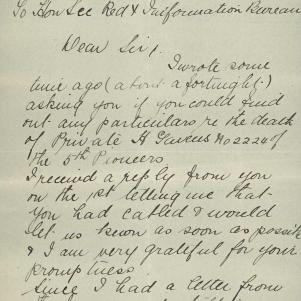 To Hon Sec Red X Information Bureau
Dear Sir,
I wrote some
time ago (about a fortnight)
asking you if you could find
out any particulars re the death
of Private H No 2224 of
The 5th Pioneers
I received a reply from you
on the 1st letting me that
you had cabled & would
let us know as soon as possib
& I am very grateful for your
promptness.
Since I had a letter from